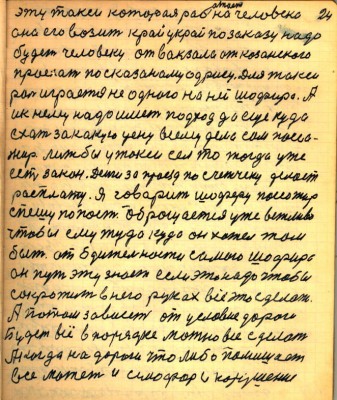 эту такси которая работает на человека 24
она его возит край украй по заказу надо
будет человеку от вакзала от козанского
проехат по сказаному одрису. Для такси
роз играется не одного на ней шофира. А
ик нему надо имет подход до еще куда
ехат за какую цену всему дела сам
жир. лиж бы у такси сел то тогда уже
ест закон. Дени за проезд по счетчику делает
расплату. Я говорит шоферу
спешу оброщается уже вежливо
чтобы ему туда куда он хотел там
быт. от бдительности самого шофира
он пут эту знает если это надо чтобы
сократит в него руках всё это сделат.
А потом зависит от условие дороги
Будет всё в порядке можно все сделат
А когда на дороги что либо помишает
все может и симофор и нарушение